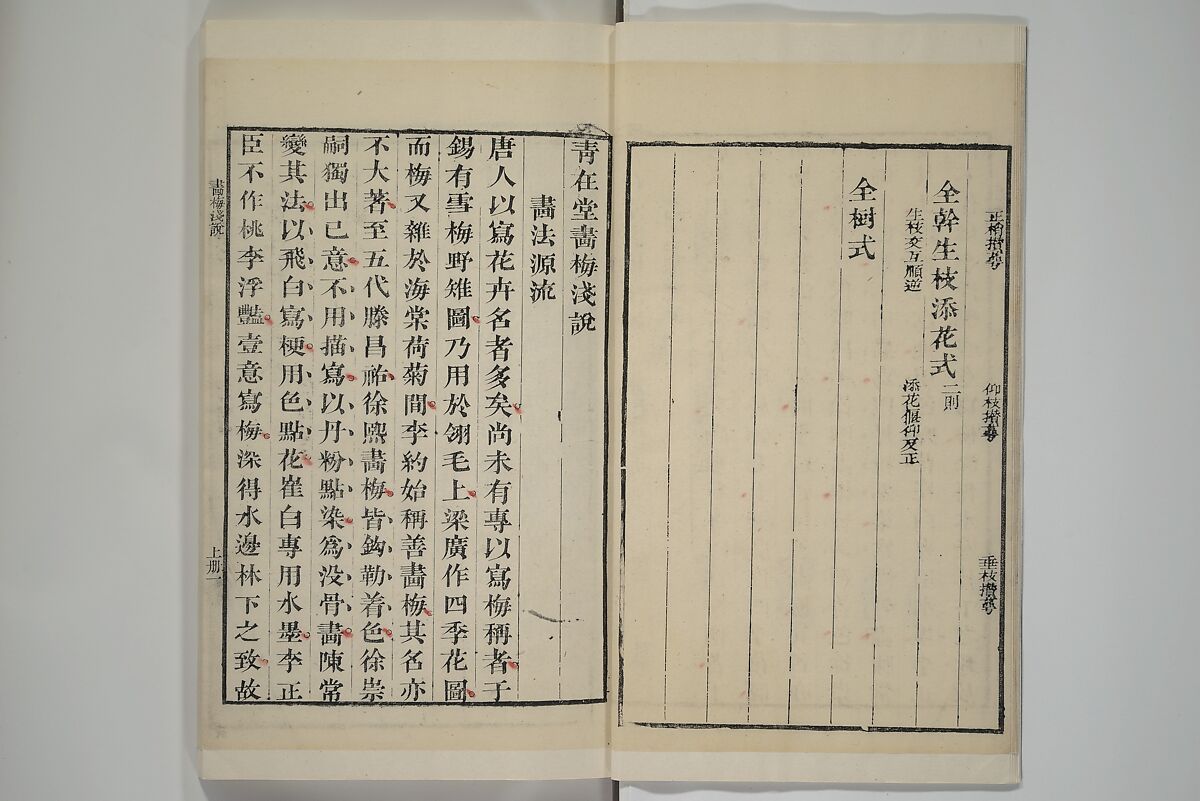 正梢攢萼
仰枝攢萼
垂枝攢萼
全幹生枝添花式二則
生枝交互順逆
添花偃仰反正
全樹式
青在堂畫梅淺說
畫法源流
唐人以寫花卉名者多矣尚未有專以寫梅稱者于
錫有雪梅野雉圖乃用於翎毛上梁廣作四季花圖
而梅又雜於海棠荷菊間李約始稱善畫梅其名亦
不大著至五代滕昌祐徐熙畫梅皆鈎勒着色徐崇
嗣獨出已意不用描寫以丹粉點染為没骨畫陳常
變其法以飛白寫梗用色點花崔白專用水墨李正
臣不作桃李浮豔壹意寫梅深得水邊林下之致故
畫梅淺說
上册一